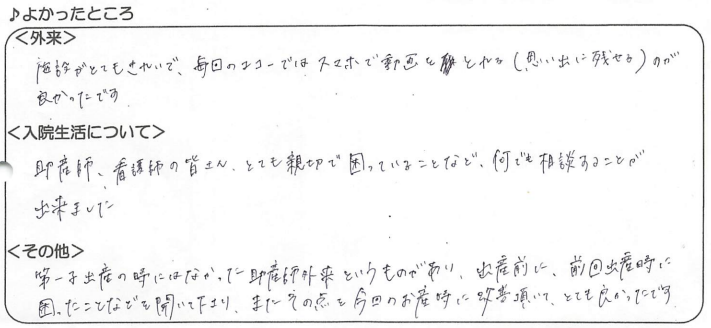 ♪よかったところ
<外来>
施設がとてもきれいで、毎回のエコーではスマホで動画をとれる(思い出に残せる)のが
良かったです
<入院生活について>
助産師、看護師の皆さん、とても親切で困っていることなど、何でも相談することが
出来ました
<その他>
第一子出産の時にはなかった助産師外来というものがあり、出産前に、前回出産時に
困ったことなどを聞いて下さり、またその点を今回のお産時に改善頂いて、とても良かったです